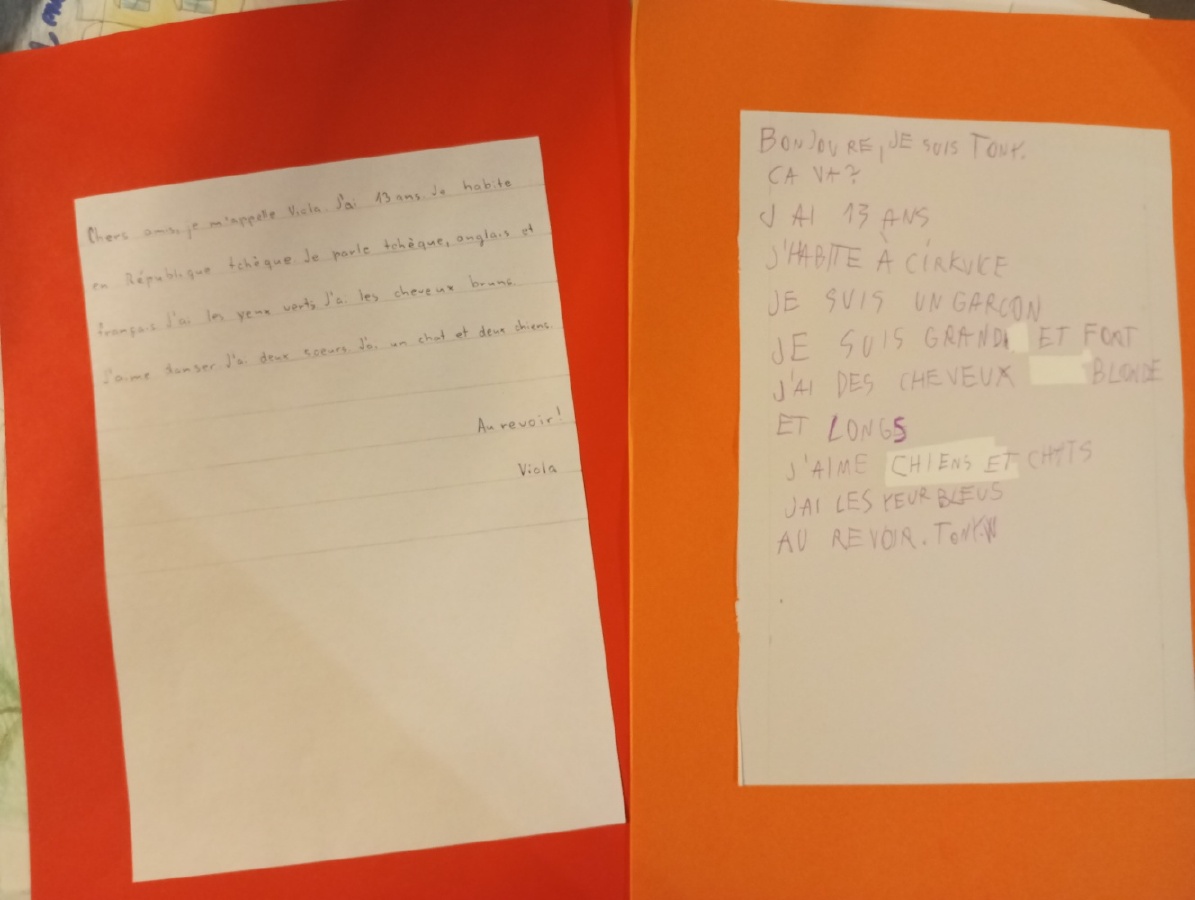 Chers amis, je m'appelle Viola. J'ai 13 ans. Je habite
en République tchèque. Je parle tchèque, anglais et
français. J'ai les yeux verts. J'ai les cheveux bruns.
J'aime danser. J'ai deux soeurs. J'ai un chat et deux chiens.
Au revoir!
Viola
BONJOURE, JE SUIS TONY.
CA VA?
J AI 13 ANS
J'HABITE À CÍRKVICE
JE SUIS UN GARCON
JE SUIS GRAND ET FORT
J'AI DES CHEVEUX BLONDE
ET LONGS
J'AIME CHIENS ET CHATS
JAI LES YEUR BLEUS
AU REVOIR. TONY.